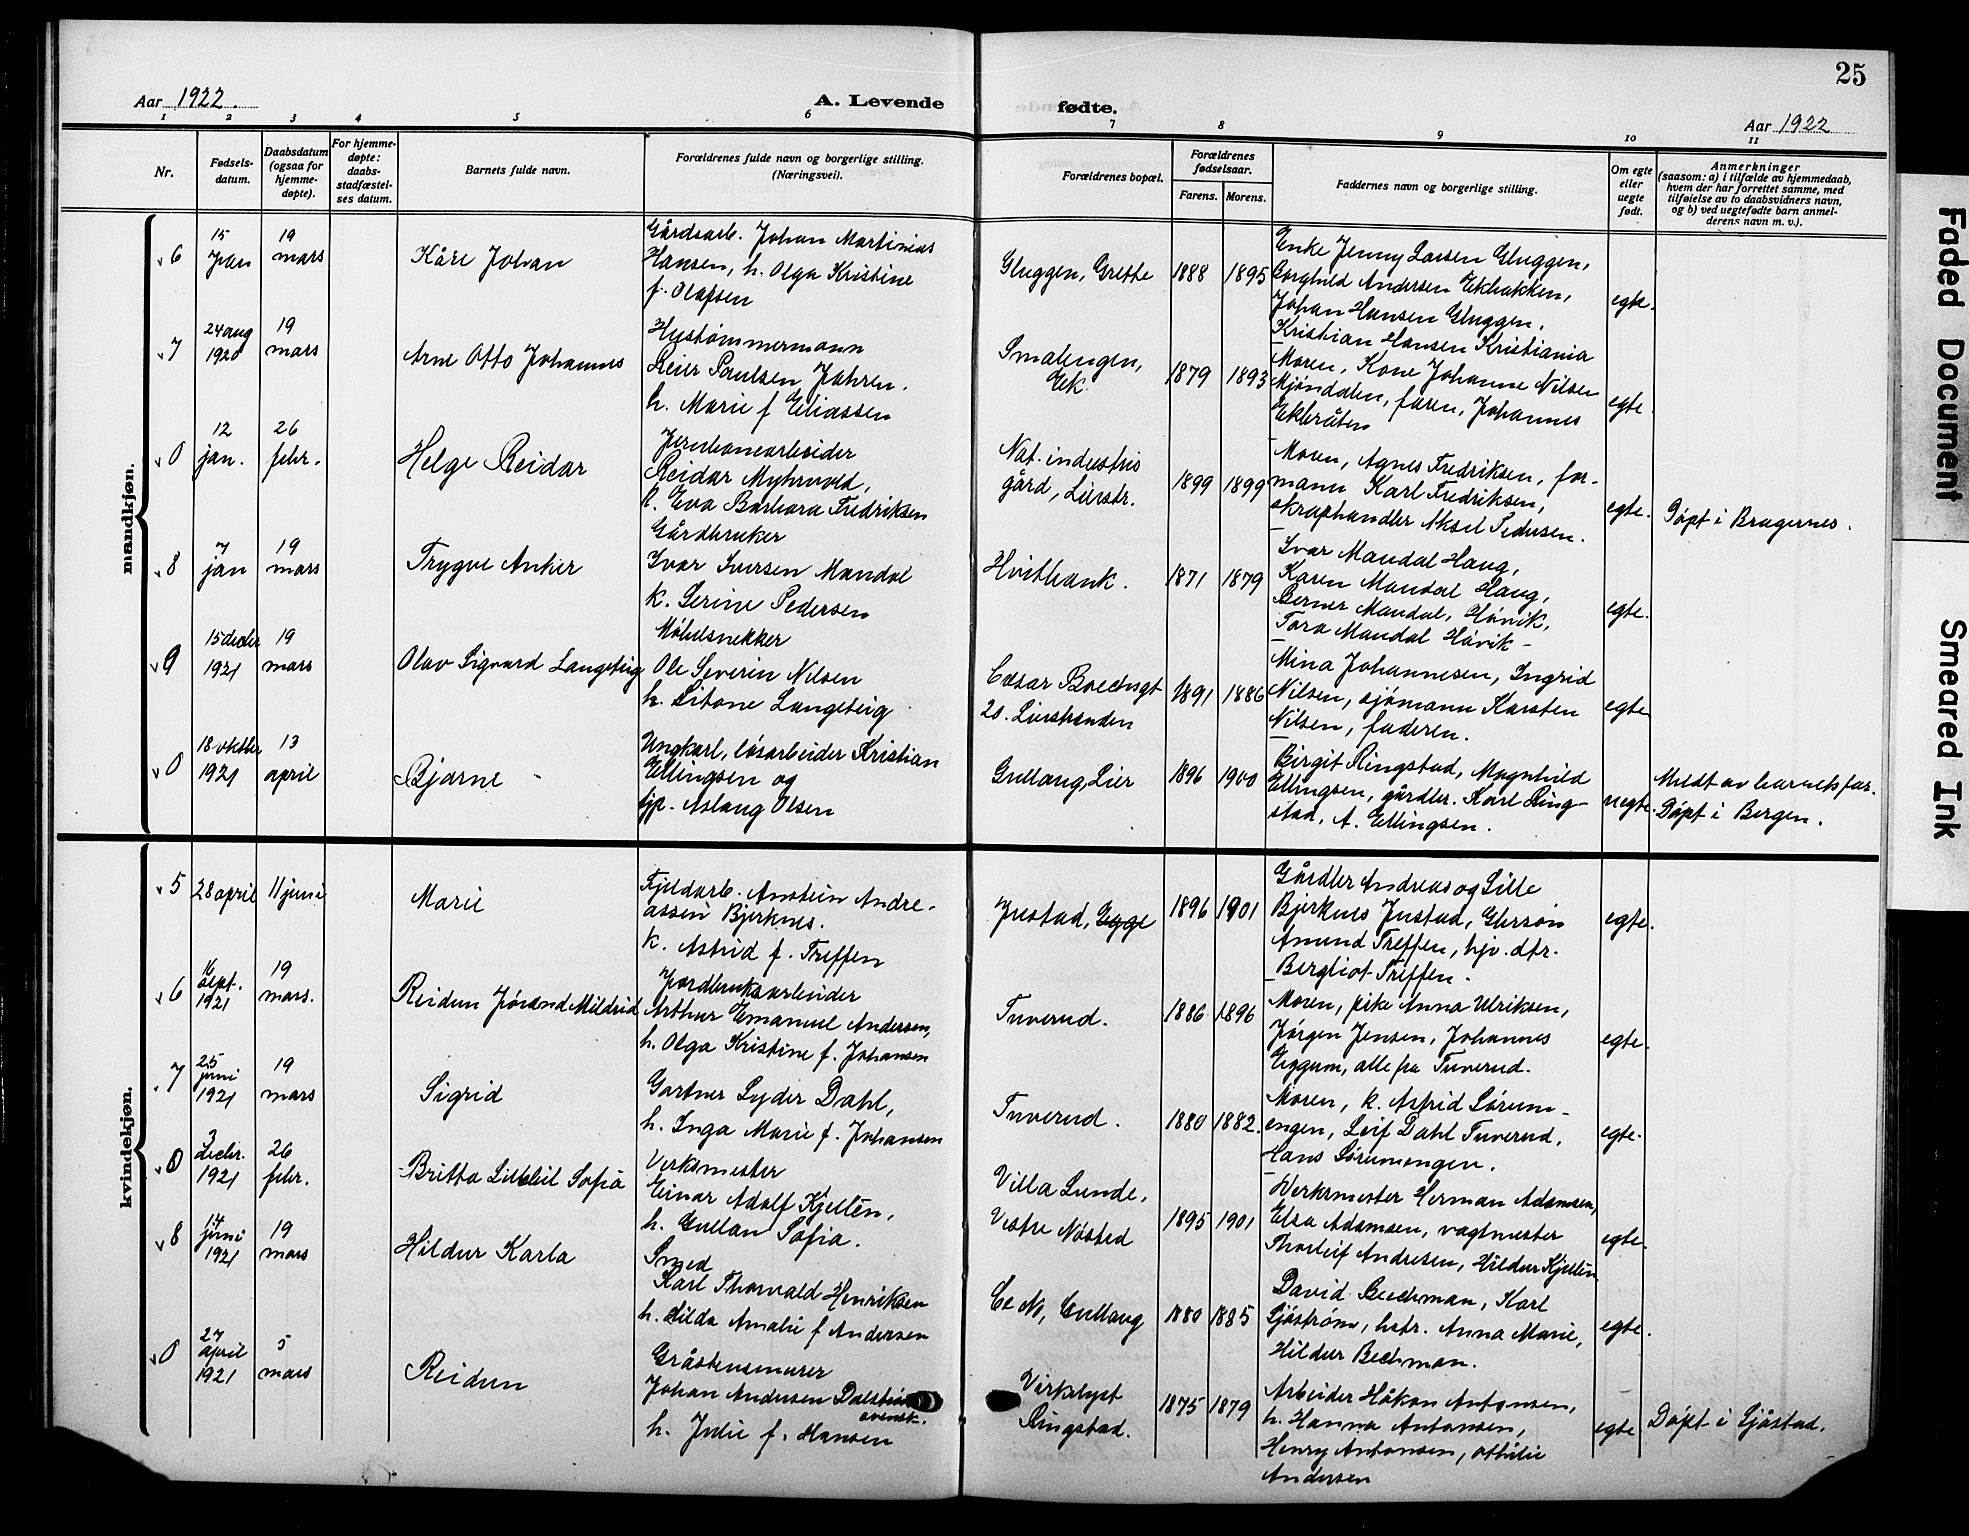 25
Aar 1922.
A. Levende
fødte.
Aar 1922
1 2 3 4 5 6 7 8 9 10 11
Nr.
Fødsels-
datum.
Daabsdatum
(ogsaa for
hjemme-
døpte).
For hjemme-
døpte:
daabs-
stadfæstel-
ses datum.
Barnets fulde navn.
Forældrenes fulde navn og borgerlige stilling.
(Næringsvei).
Forældrenes bopæl.
Forældrenes
fødselsaar.
Farens. Morens.
Faddernes navn og borgerlige stilling.
Om egte
eller
uegte
født.
Anmerkninger
(saasom: a) i tilfælde av hjemmedaab,
hvem der har forrettet samme, med
tilføielse av to daabsvidners navn,
og b) ved uegtefødte barn anmel-
derens navn m. v.).
mandkjøn.
6
15
jan
19
mars
Kåre Johan
Gårdsarb. Johan Martinius
Hansen, h. Olga Kristine
f. Olafsen
Gluggen, Grette
1888
1895
Enke Jenny Larsen Gluggen,
Borghild Andersen Ekbakken,
Johan Hansen Gluggen,
Kristian Hansen Kristiania
egte.
7
24 aug
1920
19
mars
Arne Otto Johannes
Hustømmermann
Reier Paulsen Johren.
h. Marie f Eliassen
Smalengen,
Ek
1879
1893
Moren, Kone Johanne Nilsen
Mjøndalen, faren, Johannes
Ekbråten
egte.
0
12
jan.
26
febr.
Helge Reidar
Jernbanearbeider
Reidar Myhrvold,
h. Eva Barbara Fredriksen
Nat. industris
gård, Lierstr.
1899
1899
Moren, Agnes Fredriksen, for-
mann Karl Fredriksen,
skraphandler Aksel Pedersen.
egte.
Døpt i Bragernes.
8
7
jan
19
mars
Trygve Anker
Gårdbruker
Ivar Iversen Mandal
k. Serine Pedersen
Hvitbank.
1871
1879
Ivar Mandal Haug,
Karen Mandal Haug,
Berner Mandal, Høvik,
Tora Mandal Høvik
egte.
9
15 decbr
1921
19
mars
Olav Sigvard Langeteig
Møbelsnekker
Ole Severin Nilsen
h. Sitone Langeteig
Cæsar Boechsgt
20. Lierstranden
1891
1886
Mina Johannesen, Ingrid
Nilsen, sjømann Karsten
Nilsen, faderen.
egte
0
18 oktbr
1921
13
april
Bjarne
Ungkarl, løsarbeider Kristian
Ellingsen og
tjp. Aslaug Olsen
Gullaug, Lier
1896
1900
Birgit Ringstad, Magnhild
Ellingsen, gårdbr. Karl Ring-
stad, A. Ellingsen.
uegte.
Meldt av barnets far.
Døpt i Bergen.
kvindekjøn.
5
28 april
11 juni
Marie
Fjeldarb. Anstein Andre-
assen Bjerknes.
k. Astrid f. Treffen
Justad, Egge
1896
1901
Gårdbr Andreas og Lille
Bjerknes Justad,
Amund Treffen, hjv. dtr.
Bergliot Treffen.
egte.
6
16
sept.
1921
19
mars.
Reidun Jørand Mildrid
Jordbruksarbeider
Arthur Emanuel Andersen,
h. Olga Kristine f. Johansen
Tuverud.
1886
1896
Moren, pike Anna Ulriksen,
Jørgen Jensen, Johannes
Eggum, alle fra Tuverud.
egte.
7
25
juni
1921
19
mars
Sigrid
Gartner Lyder Dahl,
h. Inga Marie f. Johansen
Tuverud.
1880
1882.
Moren, k. Astrid Sørum-
engen, Leif Dahl Tuverud,
Hans Sørumengen.
egte.
0
3
decbr.
1921
26
febr.
Britta Sofia
Verksmester
Einar Adolf Kjellén,
h. Gullan Sofia.
Villa Lunde,
Vestre Nøsted
1895
1901
Verksmester Herman Adamsen,
Elsa Adamsen, vagtmester
Thorleif Andresen, Hildur Kjellén
egte.
8
14
juni
1921
19
mars
Hildur Karla
Smed
Karl Thorvald Henriksen
h. Hilda Amalie f Andersen
Gullaug
1880
1885
David Bechman, Karl
Sjøstrøm, hstr. Anna Marie,
Hildur Bechman.
egte.
0
27
april
1921
5
mars
Reidun
Gråstensmurer
Johan Andersen
svensk.
h. Julie f. Hansen
Virkelyst
Ringstad.
1875
1879
Arbeider Håkon Antonsen,
h. Hanna Antonsen,
Henry Antonsen, Othilie
Andersen
egte
Døpt i Sjåstad.
Faded Document
Smeared Ink